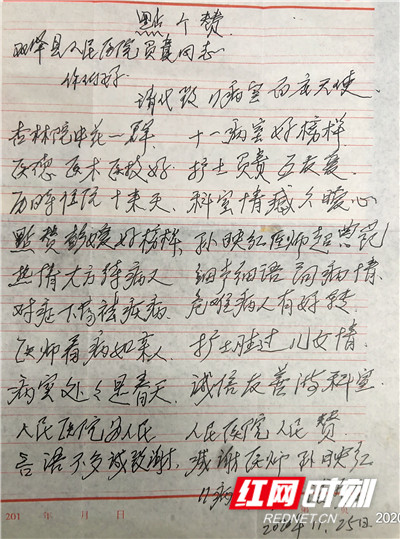 點个赞
人民医院负责同志
你们好
请代致 11病室白衣天使
杏林院中花一群 十一病室好榜样
医德医术医技好 护士负责又友爱
历时住院十来天 科室情感太暖心
點赞 好榜样 孙映红医师超典范
热情大方待病人 细声细语问病情
对症下药祛疾病 危难病人有好转
医师看病如亲人 护士胜过儿女情
病室处处是春天 诚信友善满科室
人民医院为人民 人民医院人民赞
言语不多诚致谢 感谢医师孙映红
11病
红网时刻
REDNET.CN
2020
201 年 月 日
11.25日